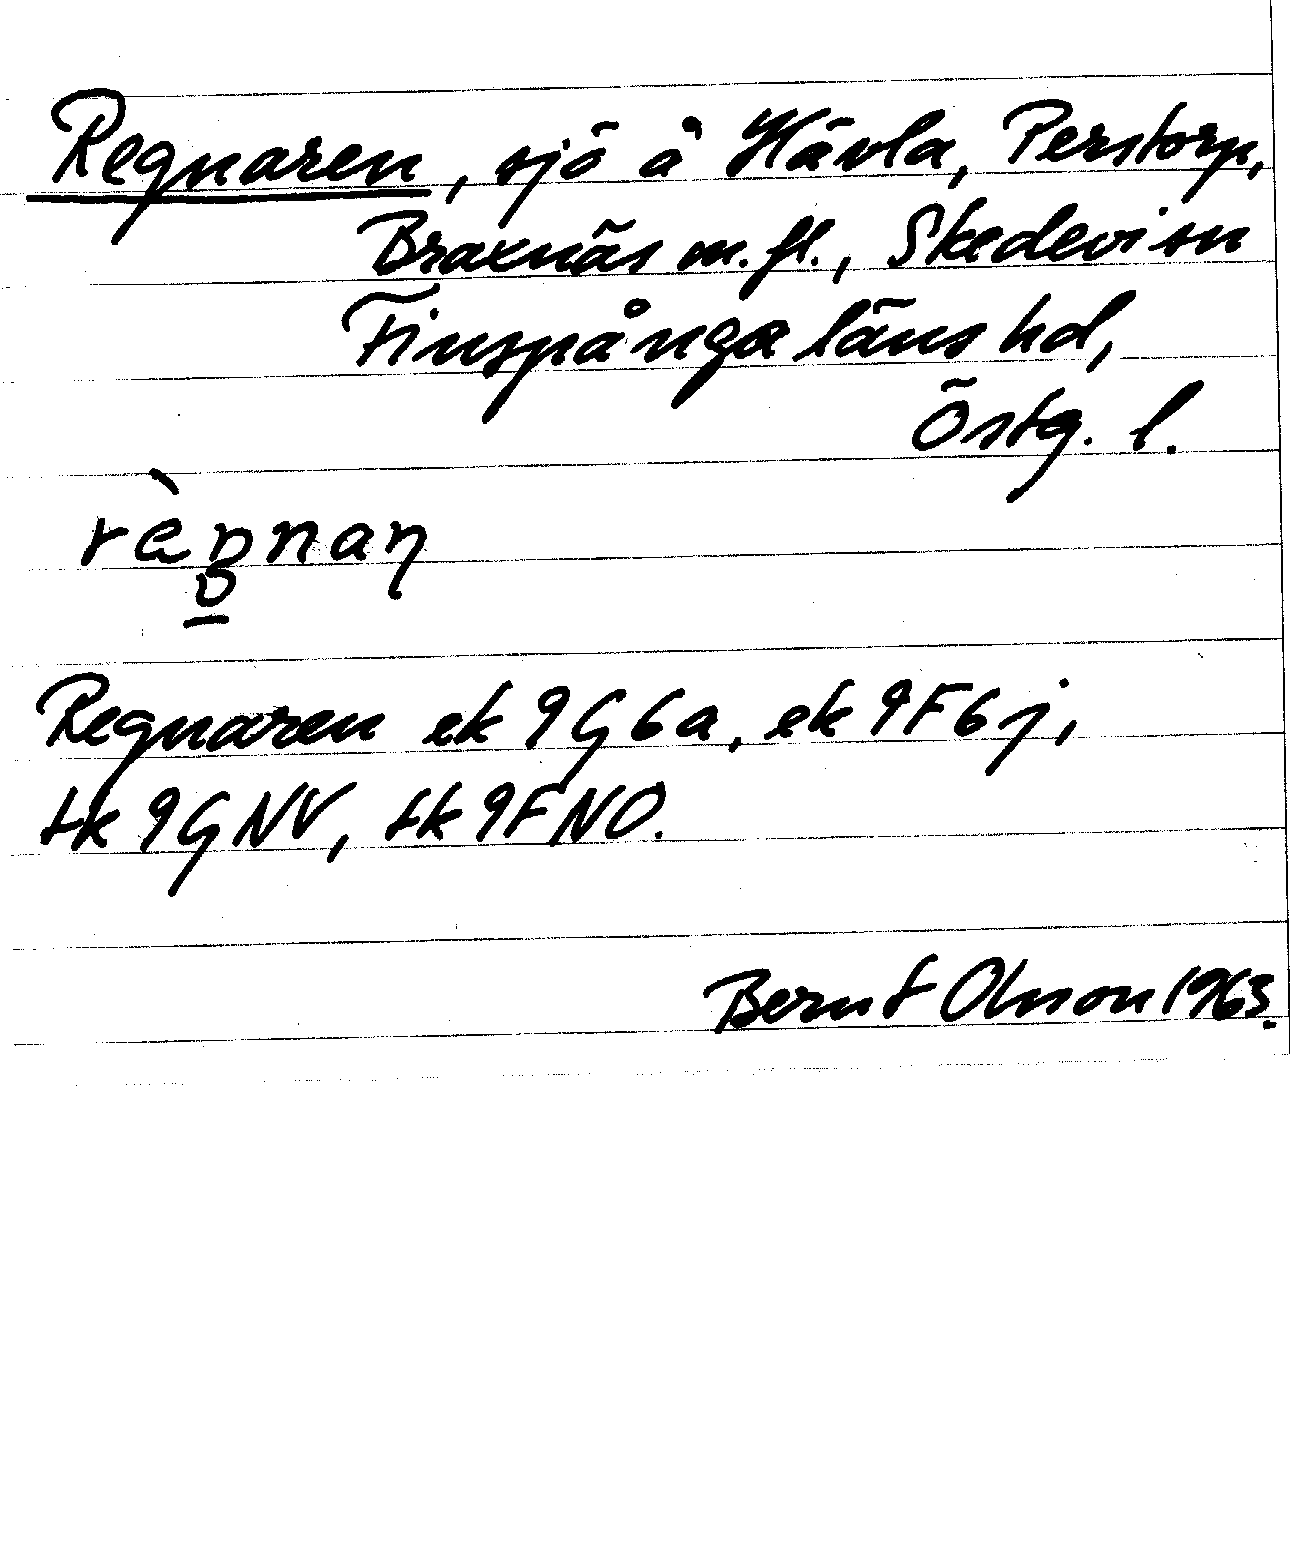 Regnaren, sjö å Hävla, Perstorp,
Braxnäs m.fl., Skedevi sn
Finspånga läns hd,
Östg. l.
règ̠naŋ
Regnaren ek 9G6a, ek 9F6j,
tk 9GNV, tk 9FNO.
Bernt Olsson 1963.